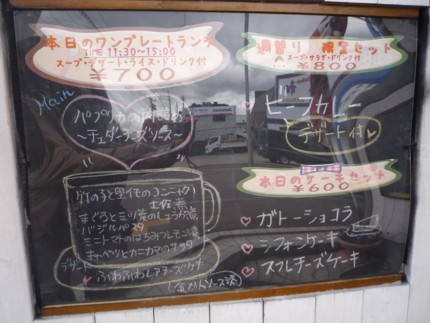 本日のワンプレートランチ
11:30~15:00
スープ・デザート・ライス・ドリンク付
¥700
Main
~チェダーチーズソース~
土佐煮
まぐろと
バジルパスタ
ミニトマトのはちみつレモン漬
キャベツとカニカマのサラダ
デザート
ふわふわレアチーズケーキ
週替り 限定セット
スープ・サラダ・ドリンク付
¥800
ビーフカレー
デザート付
本日のケーキセット
¥600
ガトーショコラ
シフォンケーキ
スフレチーズケーキ